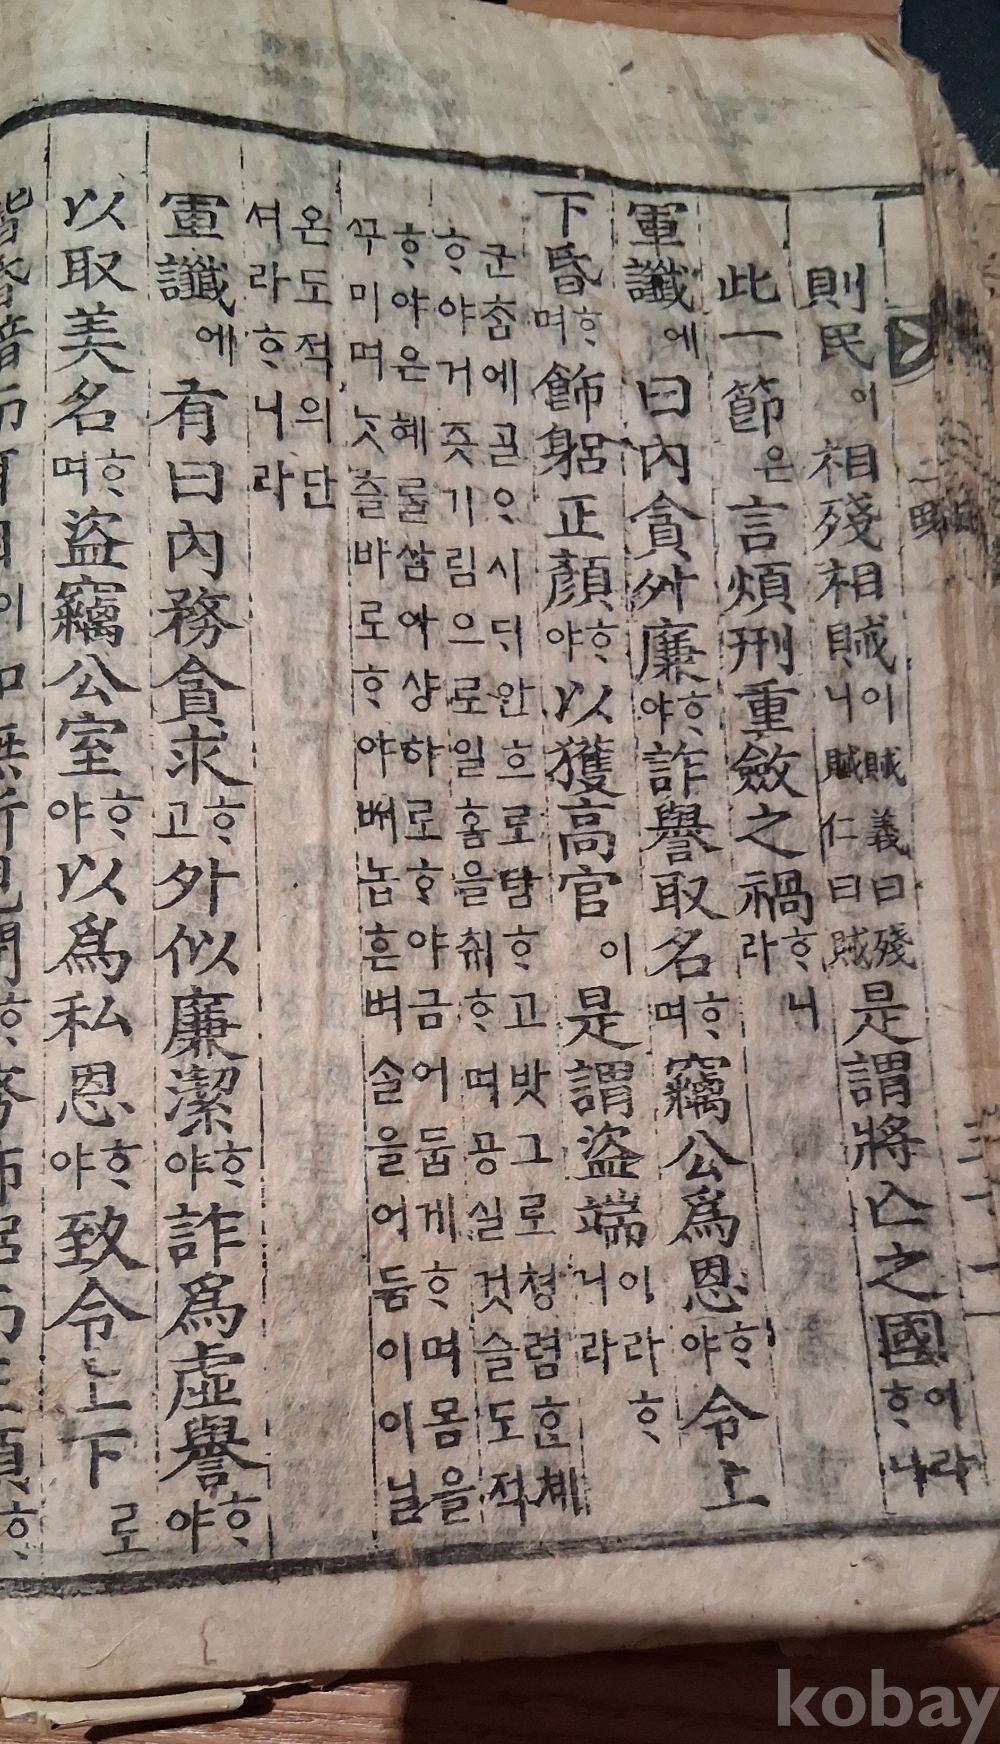 則民이相殘相賊이니賊義曰殘賊仁曰賊是謂將亾之國이라ᄒᆞ나니
此一節은言煩刑重斂之禍ᄒᆞ니라
軍讖에曰內貪外廉ᄒᆞ야詐譽取名ᄒᆞ며竊公爲恩ᄒᆞ야令上
下昏ᄒᆞ며飾躬正顏ᄒᆞ야以獲高官이是謂盜端이라ᄒᆞ거라
군참에ᄀᆞᆯ오시디안흐로탐ᄒᆞ고밧그로청렴ᄒᆞᆫ쳬
ᄒᆞ야거즛기림으로일홈을취ᄒᆞ며공실것슬도적
ᄒᆞ야은혜ᄅᆞᆯ삼아샹하로ᄒᆞ야금어둡게ᄒᆞ며몸을
ᄭᅮ미며ᄂᆞᆺ츨바로ᄒᆞ야ᄡᅥ놉흔벼슬을어둠이이닐
온도적의단
셔라ᄒᆞ니라
軍讖에有曰內務貪求ᄒᆞ고外似廉潔ᄒᆞ야詐爲虛譽ᄒᆞ야
以取美名ᄒᆞ며盜竊公室ᄒᆞ야以爲私恩ᄒᆞ야致令上下로
kobay